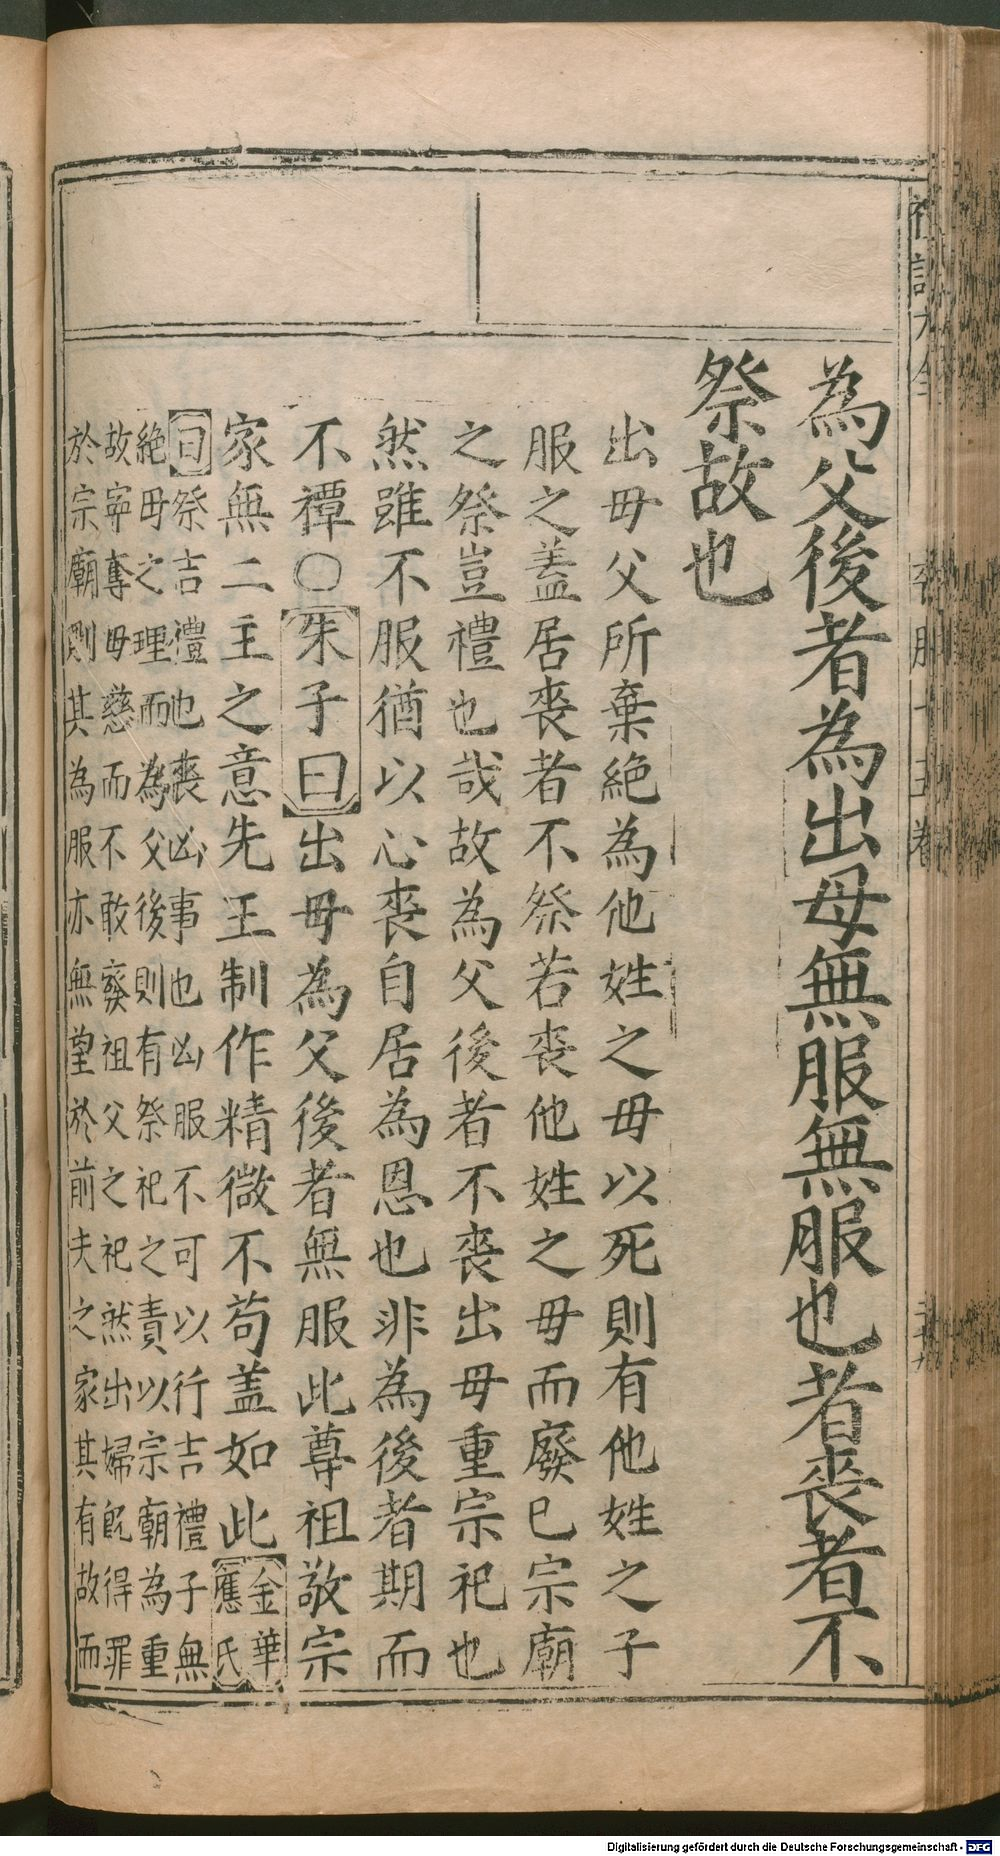 為父後者為出母無服無服也者喪者不
祭故也
出母父所棄絶為他姓之母以死則有他姓之子
服之蓋居喪者不祭若喪他姓之母而廢已宗廟
之祭豈禮也哉故為父後者不喪出母重宗祀也
然雖不服猶以心喪自居為恩也非為後者期而
不禫○朱子曰出母為父後者無服此尊祖敬宗
家無二主之意先王制作精微不苟盖如此金華
應氏
曰祭吉禮也喪凶事也凶服不可以行吉禮子無
絶母之理而為父後則有祭祀之責以宗廟為重
故寧奪母慈而不敢廢祖父之祀然出婦既得罪
於宗廟則其為服亦無望於前夫之家其有故而
Digitalisierung gefördert durch die Deutsche Forschungsgemeinschaft - DFG